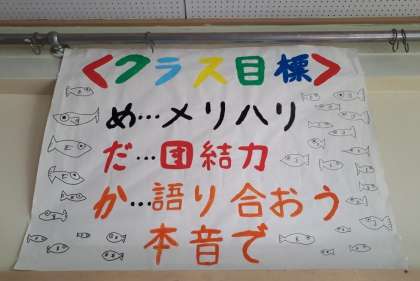 <クラス目標>
め…メリハリ
だ…団結力
か…語り合おう
本音で